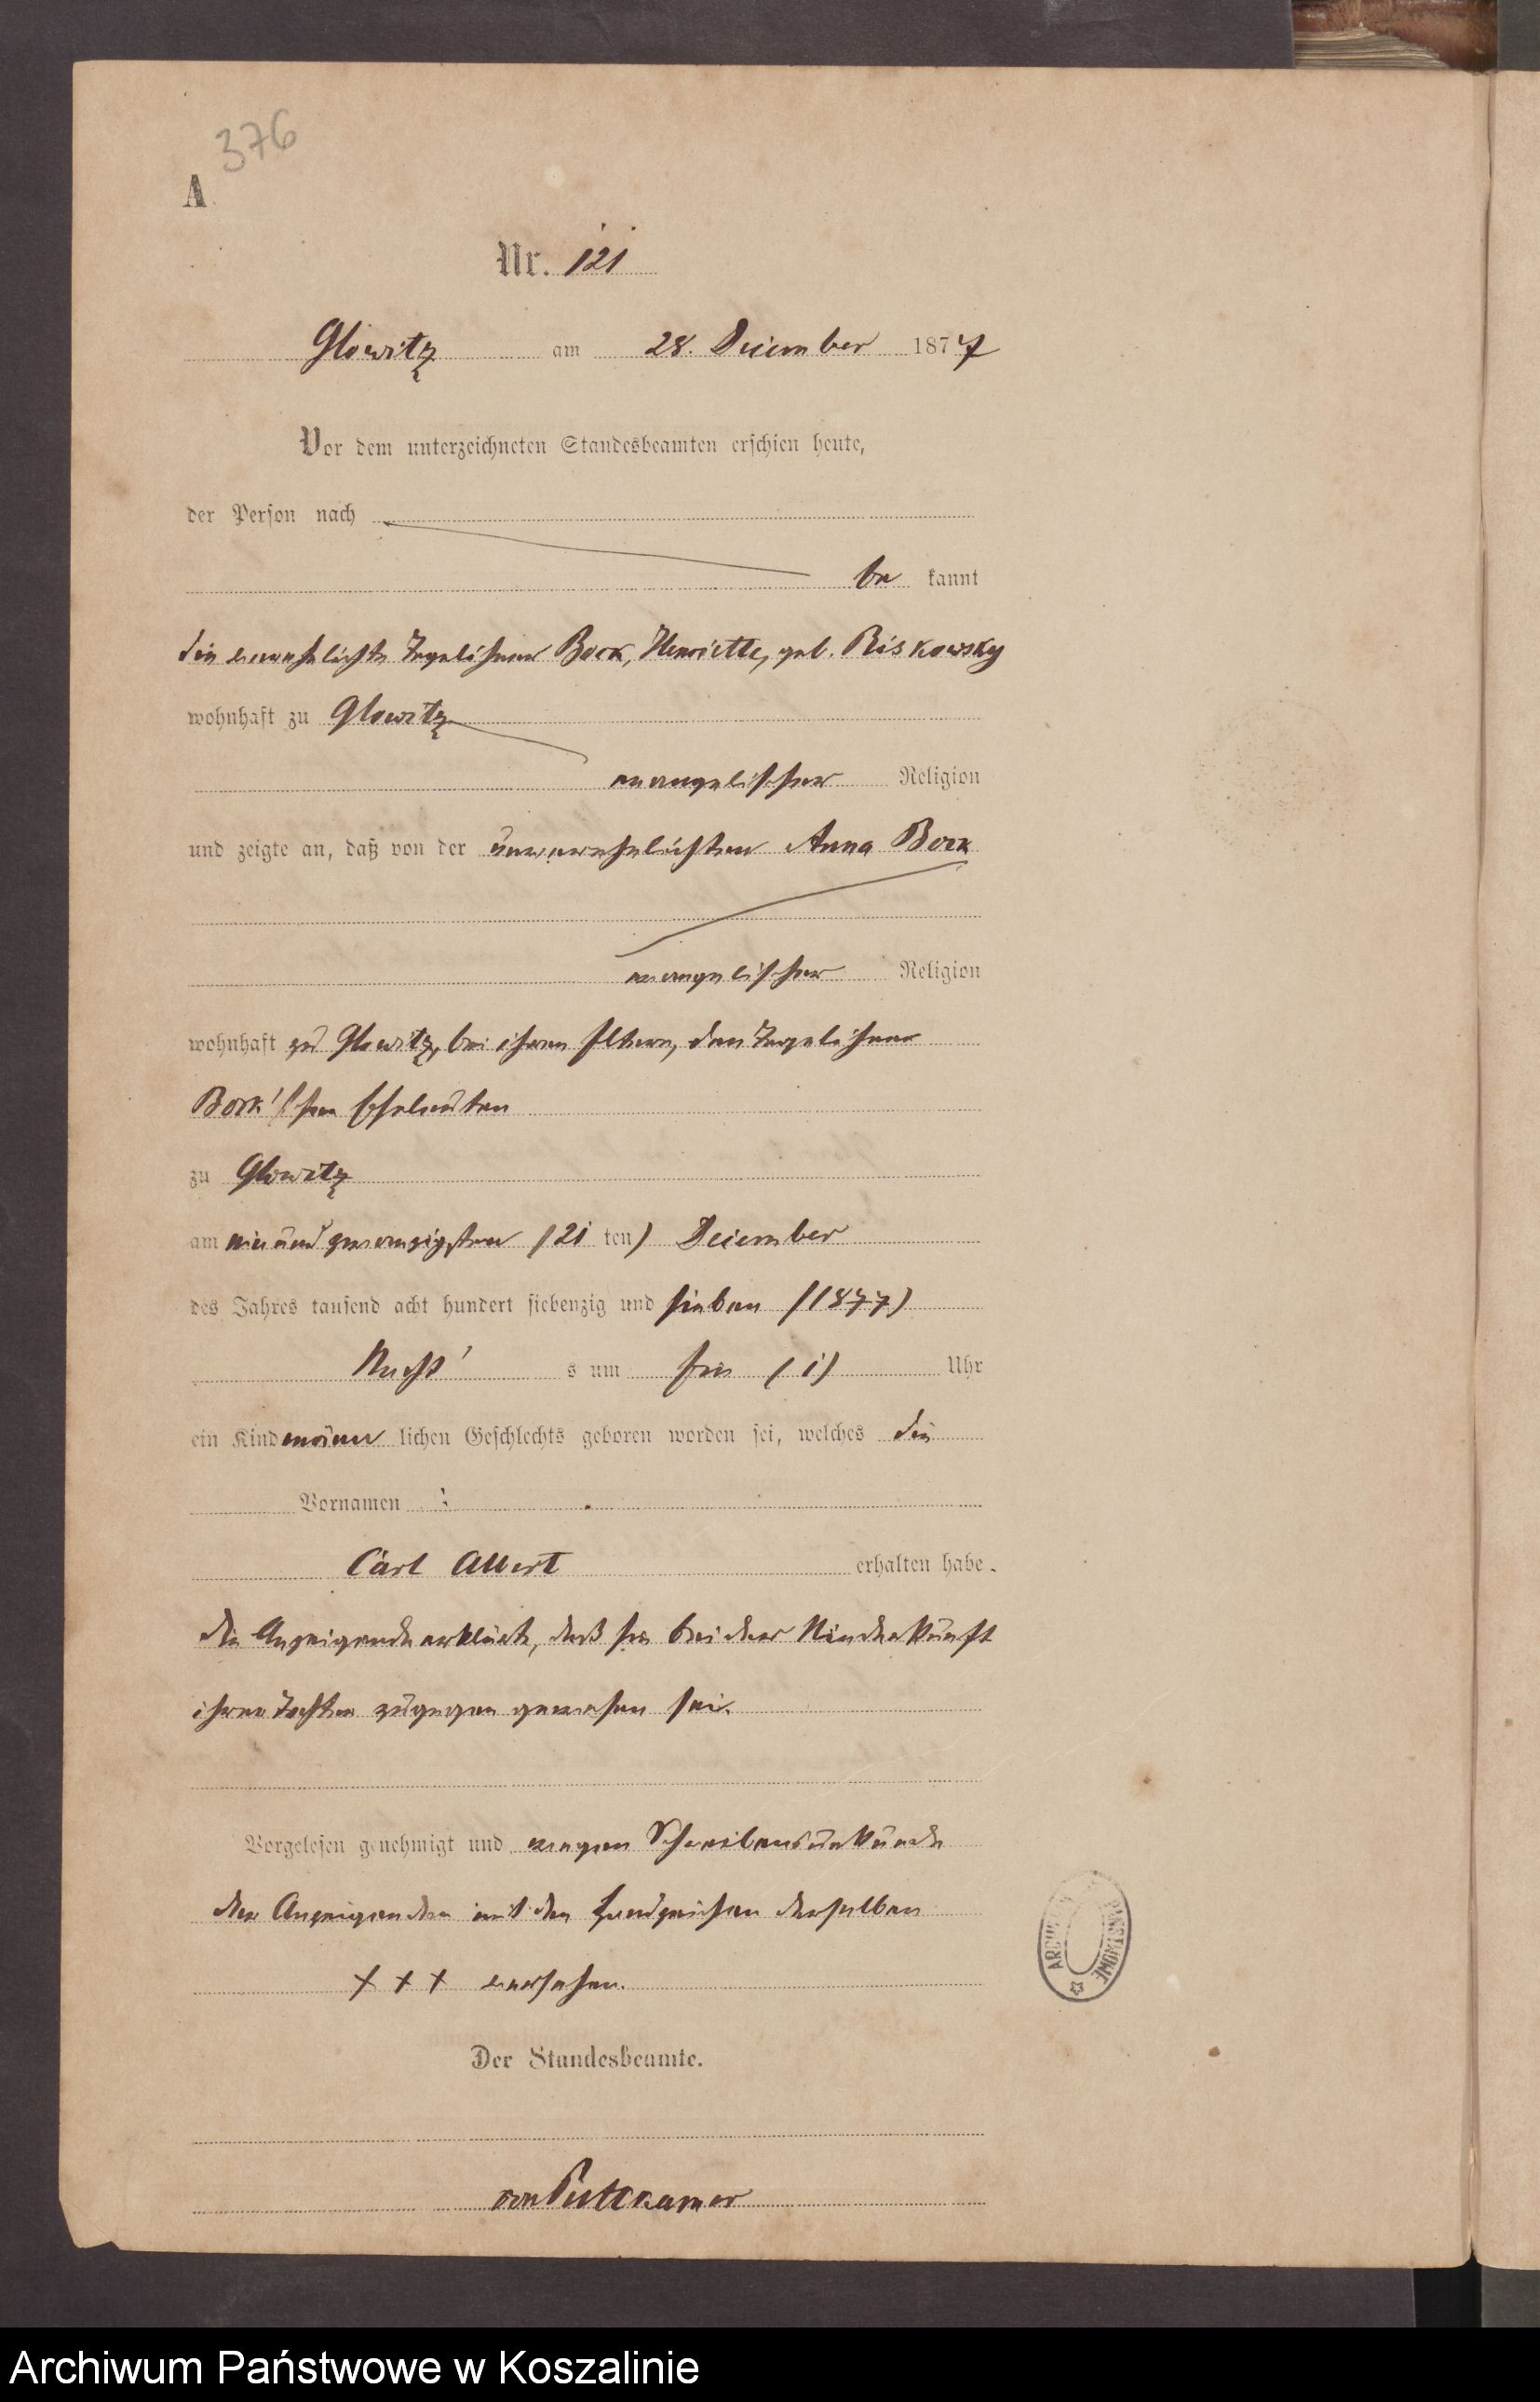 376
A.
Nr. 121
Glowitz am 28. December 1877
Vor dem unterzeichneten Standesbeamten erschien heute,
der Person nach
be kannt
die verehelichte Tagelöhner Bock, Henriette, geb. Riskowsky
wohnhaft zu Glowitz
evangelischer Religion
und zeigte an, daß von der unverehelichten Anna Bock
evangelischer Religion
wohnhaft zu Glowitz, bei ihren Eltern, den Tagelöhner
Bock'schen Eheleuten
zu Glowitz
am einundzwanzigsten (21 ten) December
des Jahres tausend acht hundert siebenzig und sieben (1877)
Nacht' s um (1) Uhr
ein Kind männ lichen Geschlechts geboren worden sei, welches die
Vornamen :
Carl Albert erhalten habe.
Die Anzeigende erklärte, daß sie bei der Niederkunft
ihrer Tochter zugegen gewesen sei.
Vorgelesen genehmigt und wegen Schreibensunkunde
der Anzeigenden mit den Handzeichen derselben
+ + + versehen.
Der Standesbeamte.
von Puttkamer
ARCHIWUM PAŃSTWOWE
Archiwum Państwowe w Koszalinie